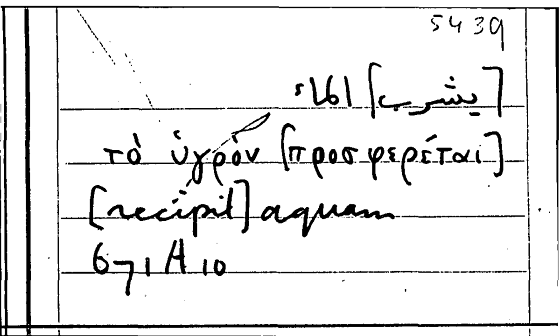 5439
[يشرب] الماء
τὸ ὑγρὸν [προσφερέται]
[recipit] aquam
671 A 10